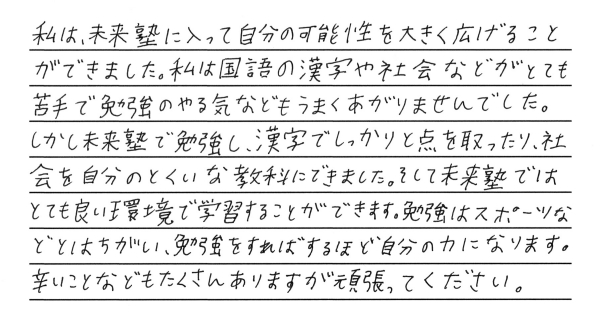 私は、未来塾に入って自分の可能性を大きく広げること
ができました。私は国語の漢字や社会などがとても
苦手で勉強のやる気などもうまくあがりませんでした。
しかし未来塾で勉強し、漢字でしっかりと点を取ったり、社
会を自分のとくいな教科にできました。そして未来塾では
とても良い環境で学習することができます。勉強はスポーツな
どとはちがい、勉強をすればするほど自分の力になります。
辛いことなどもたくさんありますが頑張ってください。